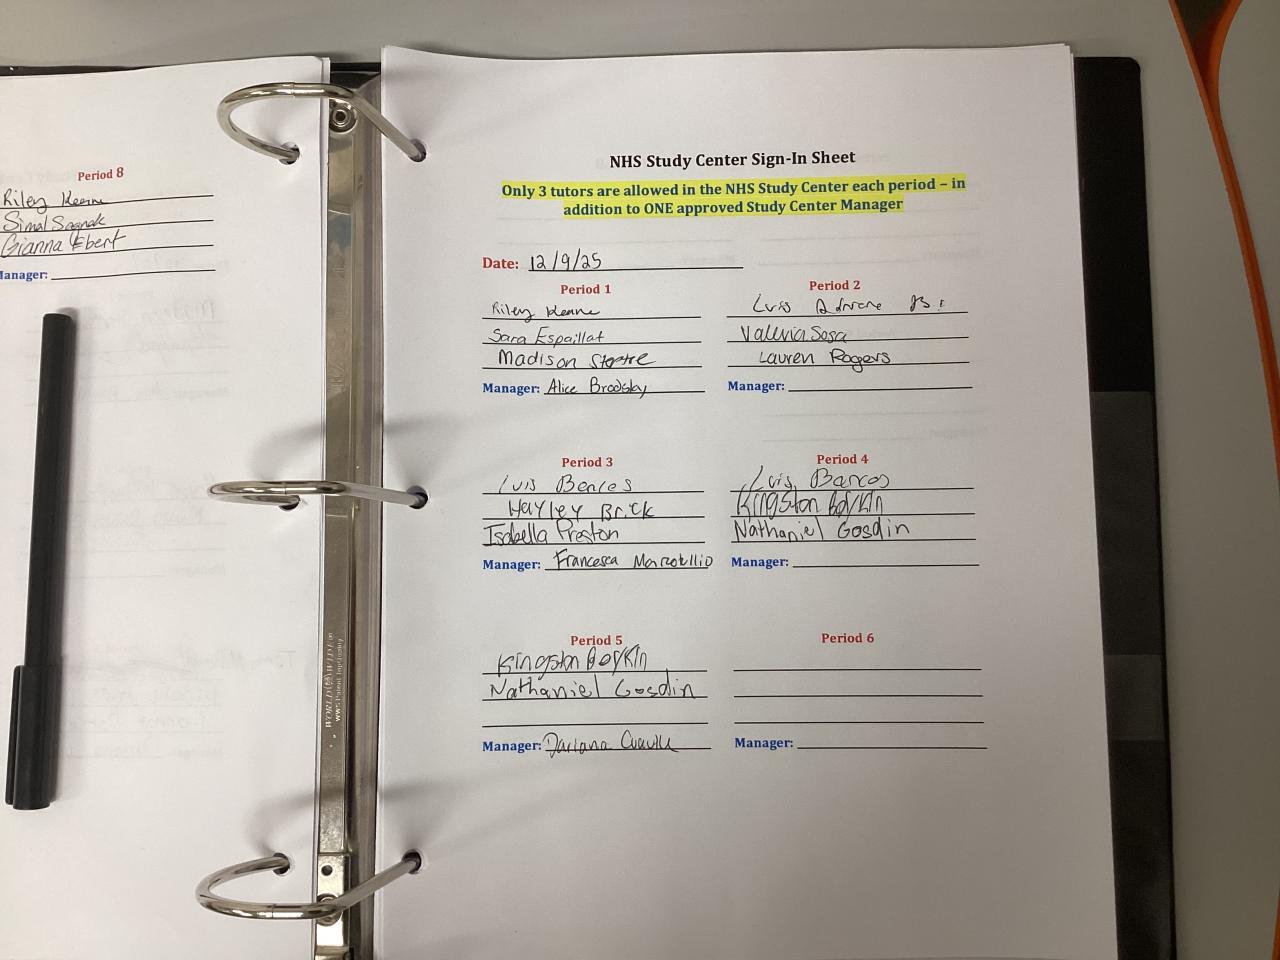 Period 8
Riley Keane
Simal
Gianna Ebert
Manager:
NHS Study Center Sign-In Sheet
Only 3 tutors are allowed in the NHS Study Center each period – in
addition to ONE approved Study Center Manager
Date: 12/9/25
Period 1
Riley Keane
Sara Espaillat
Madison
Manager: Alice Brodsky
Period 2
Luis
Valeria Sosa
Lauren Rogers
Manager:
Period 3
Luis
Hayley Brick
Isabella Preston
Manager: Francesca
Period 4
Luis Barcos
Kingston
Nathaniel Gosdin
Manager:
Period 5
Kingston
Nathaniel Gosdin
Manager: Dariana
Period 6
Manager:
WORLD WIDE